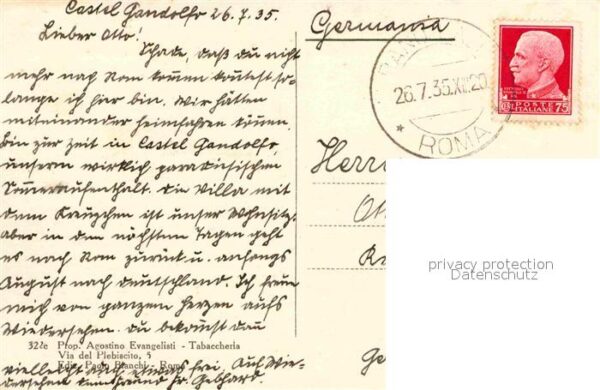 Castel Gandolfo 26.7.35.
Lieber Otto!
Schade, daß du nicht
mehr nach Rom kommen konntest so-
lange ich hier bin. Wir hätten
miteinander heimfahren können.
Bin zur Zeit in Castel Gandolfo,
unserm wirklich paradiesischen
Sommeraufenthalt. Die Villa mit
dem Kreuzchen ist unser Wohnsitz.
Aber in den nächsten Tagen geht
es nach Rom zurück u. anfangs
August nach Deutschland. Ich freue
mich von ganzem Herzen aufs
Wiedersehen. Du bekommst dann
vielleicht auch etwas frei. Auf Wie-
dersehen Fr. Gebhart.
322e Prop. Agostino Evangelisti - Tabaccheria
Via del Plebiscito, 5
Ediz. Paolo Bianchi - Roma
Germania
26.7.35.XIII 20
ROMA
POSTE
ITALIANE
75
Herrn
privacy protection
Datenschutz